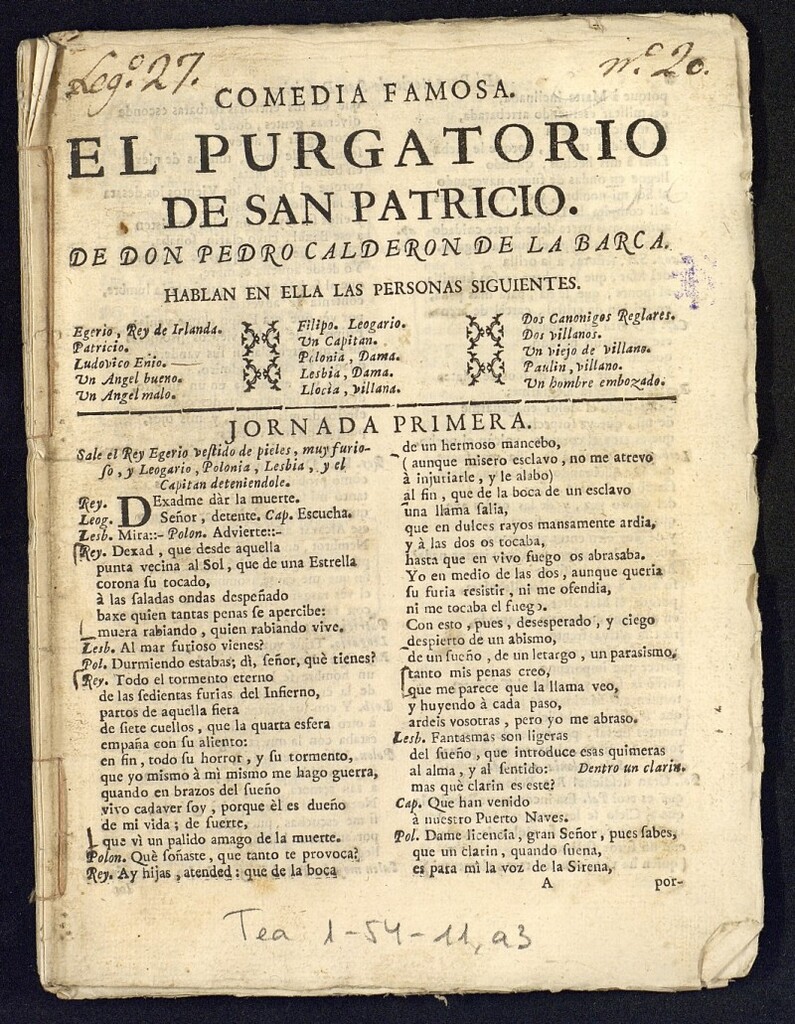 Leg.º 27.
n.º 20.
COMEDIA FAMOSA.
EL PURGATORIO
DE SAN PATRICIO.
DE DON PEDRO CALDERON DE LA BARCA.
HABLAN EN ELLA LAS PERSONAS SIGUIENTES.
Egerio, Rey de Irlanda.
Patricio.
Ludovico Enio.
Un Angel bueno.
Un Angel malo.
Filipo. Leogario.
Un Capitan.
Polonia, Dama.
Lesbia, Dama.
Llocìa, villana.
Dos Canonigos Reglares.
Dos villanos.
Un viejo de villano.
Paulin, villano.
Un hombre embozado.
JORNADA PRIMERA.
Sale el Rey Egerio veſtido de pieles, muy furio-
ſo, y Leogario, Polonia, Lesbia, y el
Capitan deteniendole.
Rey. DExadme dàr la muerte.
Leog. Señor, detente. Cap. Eſcucha.
Lesb. Mira::- Polon. Advierte::-
Rey. Dexad, que desde aquella
punta vecina al Sol, que de una Eſtrella
corona ſu tocado,
à las ſaladas ondas deſpeñado
baxe quien tantas penas ſe apercibe:
muera rabiando, quien rabiando vive.
Lesb. Al mar furioſo vienes?
Pol. Durmiendo eſtabas; dì, ſeñor, què tienes?
Rey. Todo el tormento eterno
de las ſedientas furias del Infierno,
partos de aquella fiera
de ſiete cuellos, que la quarta esfera
empaña con ſu aliento:
en fin, todo ſu horror, y ſu tormento,
que yo mismo à mì mismo me hago guerra,
quando en brazos del ſueño
vivo cadaver ſoy, porque èl es dueño
de mi vida; de ſuerte,
que vì un palido amago de la muerte.
Polon. Què ſoñaste, que tanto te provoca?
Rey. Ay hijas, atended: que de la boca
de un hermoso mancebo,
(aunque misero esclavo, no me atrevo
à injuriarle, y le alabo)
al fin, que de la boca de un esclavo
una llama ſalia,
que en dulces rayos mansamente ardia,
y à las dos os tocaba,
hasta que en vivo fuego os abrasaba.
Yo en medio de las dos, aunque queria
ſu furia resistir, ni me ofendia,
ni me tocaba el fuego.
Con esto, pues, desesperado, y ciego
despierto de un abismo,
de un ſueño, de un letargo, un parasismo,
tanto mis penas creo,
que me parece que la llama veo,
y huyendo à cada paso,
ardeis vosotras, pero yo me abraso.
Lesb. Fantasmas son ligeras
del ſueño, que introduce esas quimeras
al alma, y al ſentido: Dentro un clarin.
mas què clarin es este?
Cap. Que han venido
à nuestro Puerto Naves.
Pol. Dame licencia, gran Señor, pues ſabes,
que un clarin, quando ſuena,
es para mì la voz de la Sirena,
A
por-
Tea 1-54-11, a3